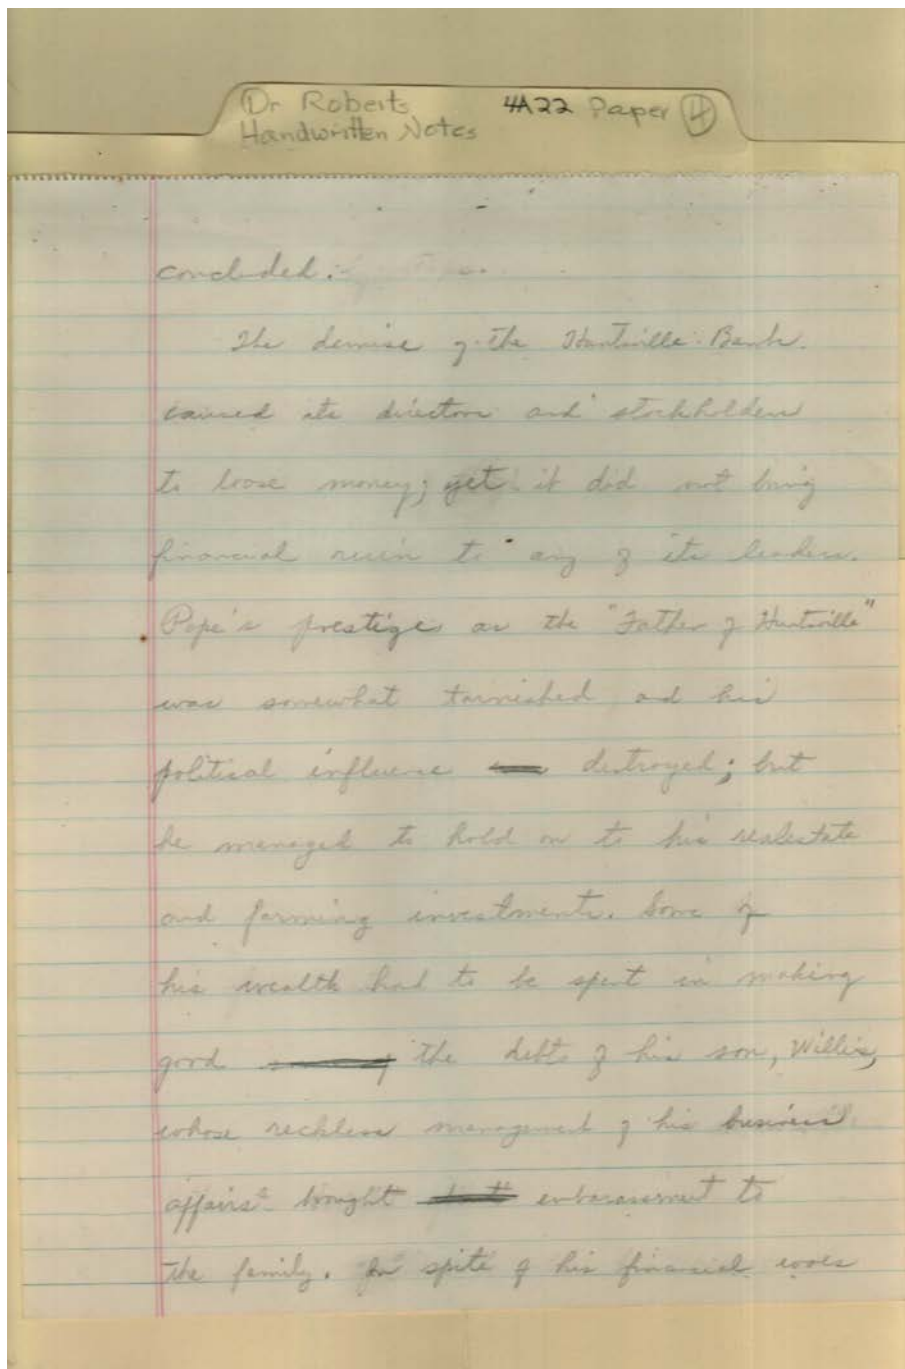 Dr Roberts 4A22 Paper 4
Handwritten Notes
concluded.
The demise of the Huntsville Bank
caused its directors and stockholders
to loose money; yet it did not bring
financial ruin to any of its leaders.
Pope's prestige as the "Father of Huntsville"
was somewhat tarnished and his
political influence destroyed; but
he managed to hold on to his realestate
and farming investments. Some of
his wealth had to be spent in making
good the debts of his son, Willis,
whose reckless management of his business
affairs bought embarassment to
the family. In spite of his financial woes